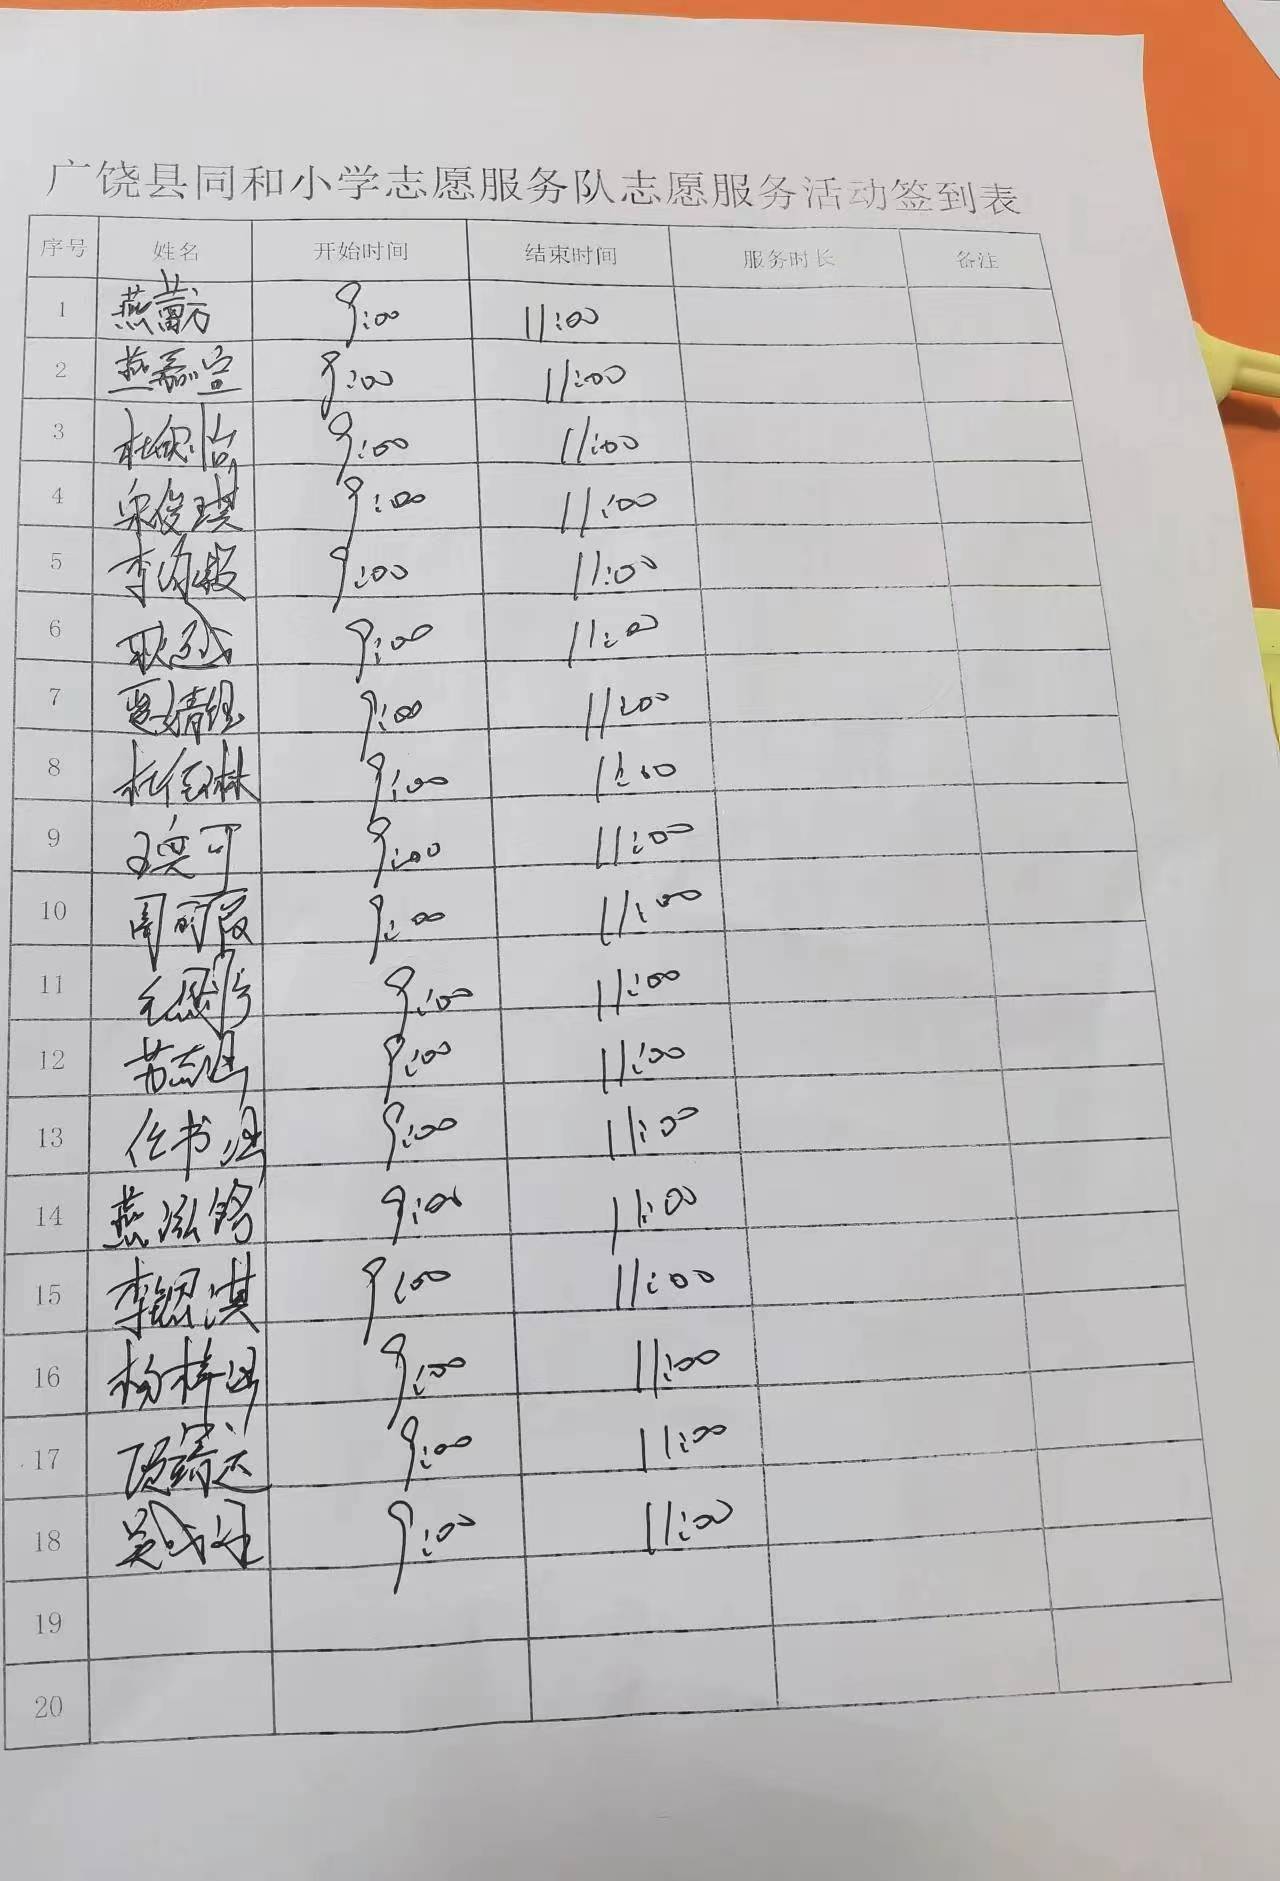 广饶县同和小学志愿服务队志愿服务活动签到表
序号 姓名 开始时间 结束时间 服务时长 备注
1 燕 9:00 11:00
2 燕嘉宣 9:00 11:00
3 杜 9:00 11:00
4 宋俊琪 9:00 11:00
5 李 9:00 11:00
6 耿 9:00 11:00
7 夏婧钰 9:00 11:00
8 杜佳林 9:00 11:00
9 王奕可 9:00 11:00
10 周 9:00 11:00
11 9:00 11:00
12 苏志函 9:00 11:00
13 任书涵 9:00 11:00
14 燕泓铭 9:00 11:00
15 李锶淇 9:00 11:00
16 杨梓涵 9:00 11:00
17 9:00 11:00
18 吴 9:00 11:00
19
20